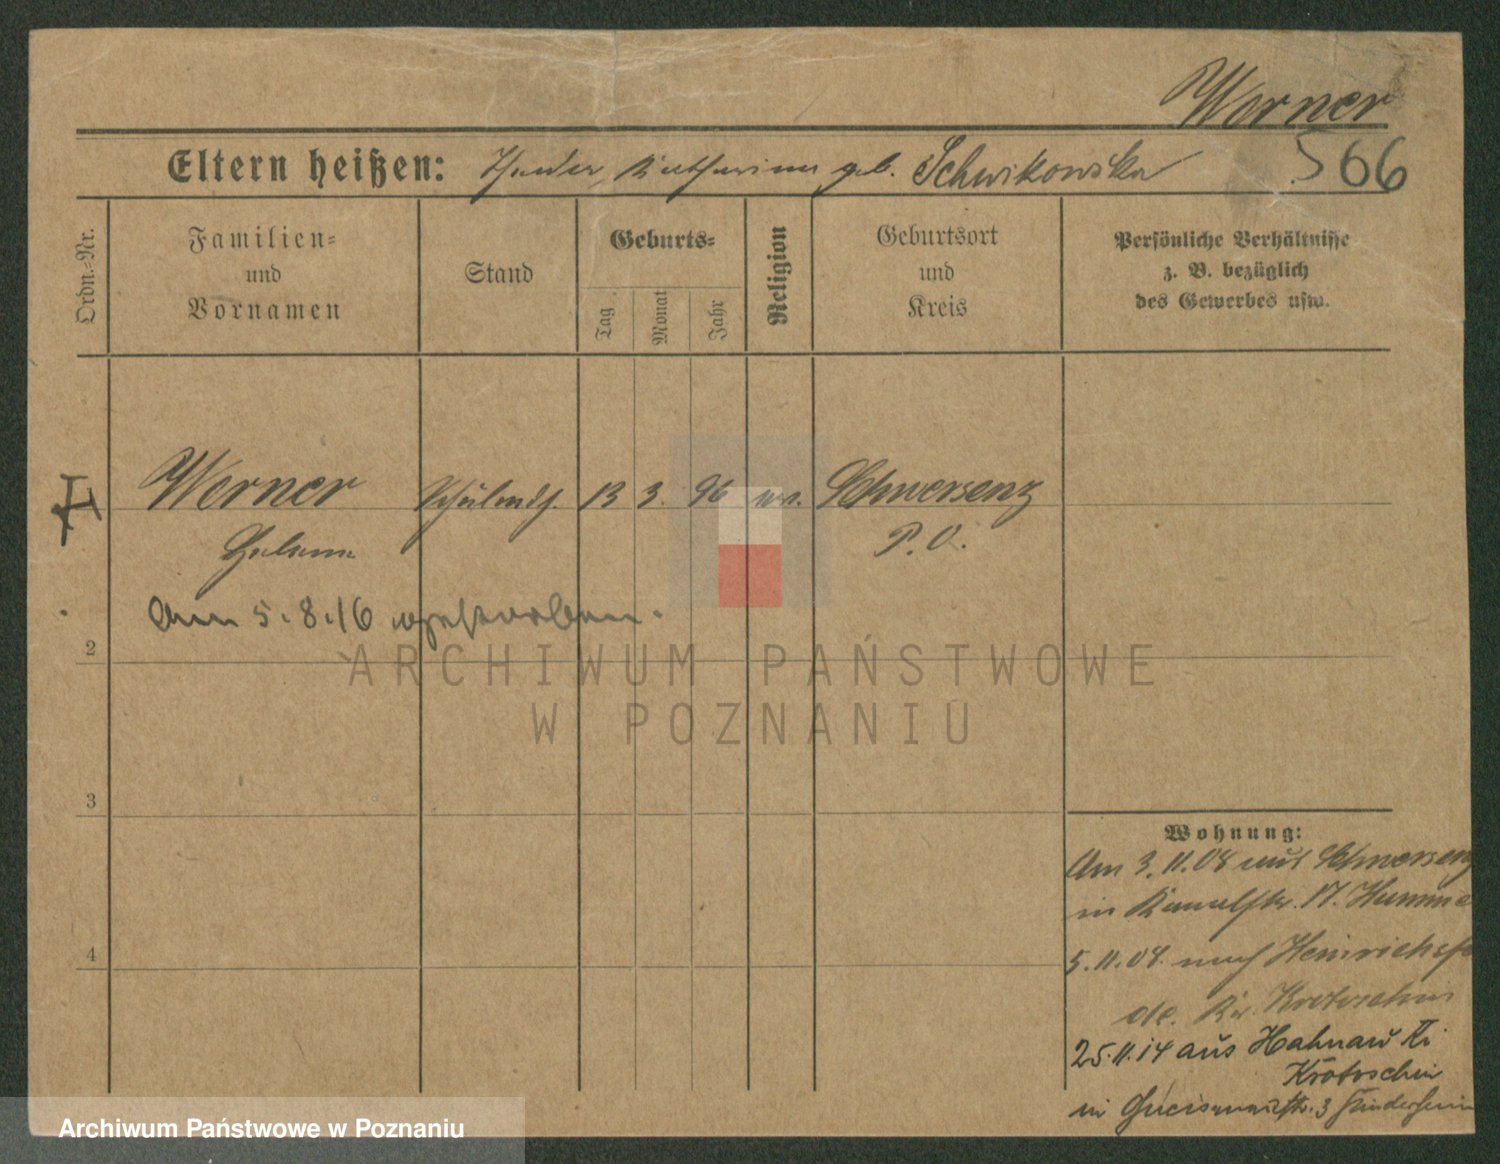 Werner
566
Eltern heißen: Theodor, Katharina geb. Schwikowska
Ordn.-Nr.
Familien-
und
Vornamen
Stand
Geburts-
Tag.
Monat
Jahr
Religion
Geburtsort
und
Kreis
Persönliche Verhältnisse
z. B. bezüglich
des Gewerbes usw.
Werner
13 3. 96
Schwersenz
P. O.
Am 5.8.16 gestorben.
2
3
4
Wohnung:
Am 3.11.08 aus Schwersenz
in Kanalstr. 17.
5.11.08. nach
Kr. Krotoschin
25.11.14 aus Hahnau Kr
Krotoschin
in Gneisenaustr. 3 Kinderheim
ARCHIWUM PAŃSTWOWE
W POZNANIU
Archiwum Państwowe w Poznaniu